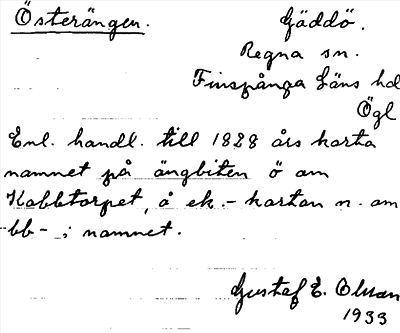 Österängen. Gäddö.
Regna sn.
Finspånga Läns hd
Ögl
Enl. handl. till 1828 års karta
namnet på ängbiten ö om
Kabbtorpet, å ek.- kartan n. om
-bb- i namnet.
Gustaf E. Olsson
1933